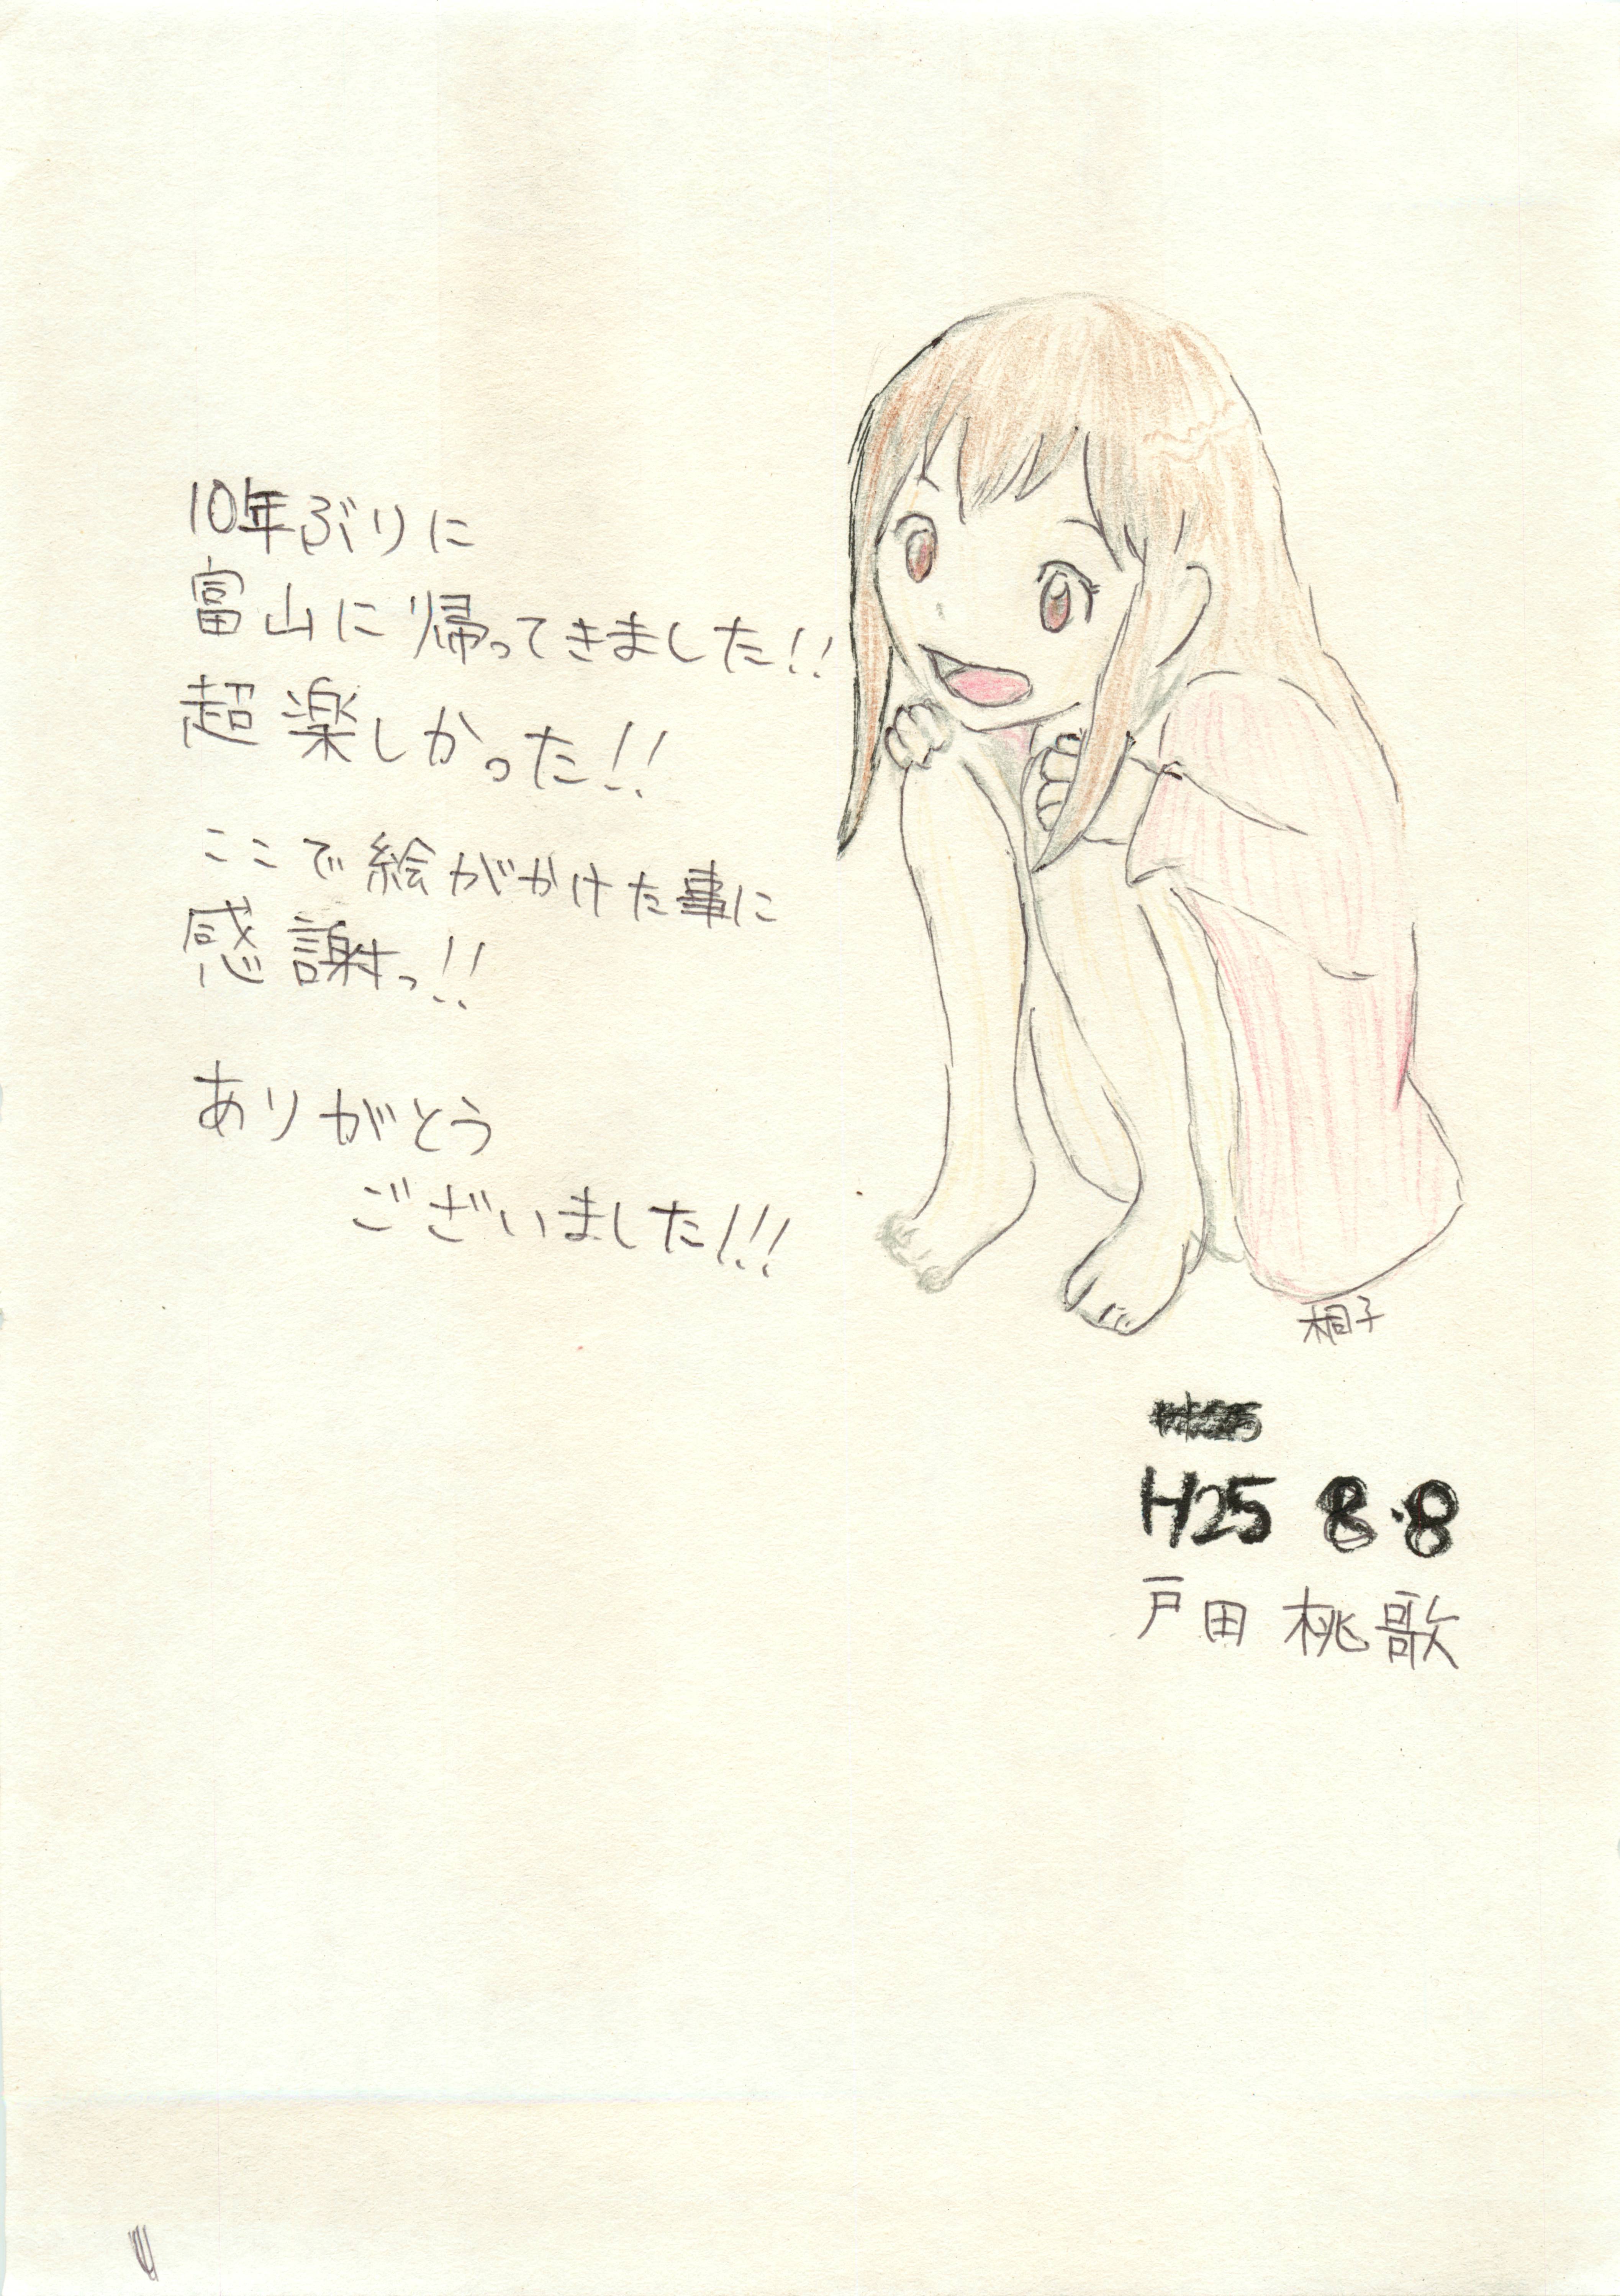 10年ぶりに
富山に帰ってきました!!
超楽しかった!!
ここで絵がかけた事に
感謝っ!!
ありがとう
ございました!!!
桐子
H25 8.8
戸田 桃歌